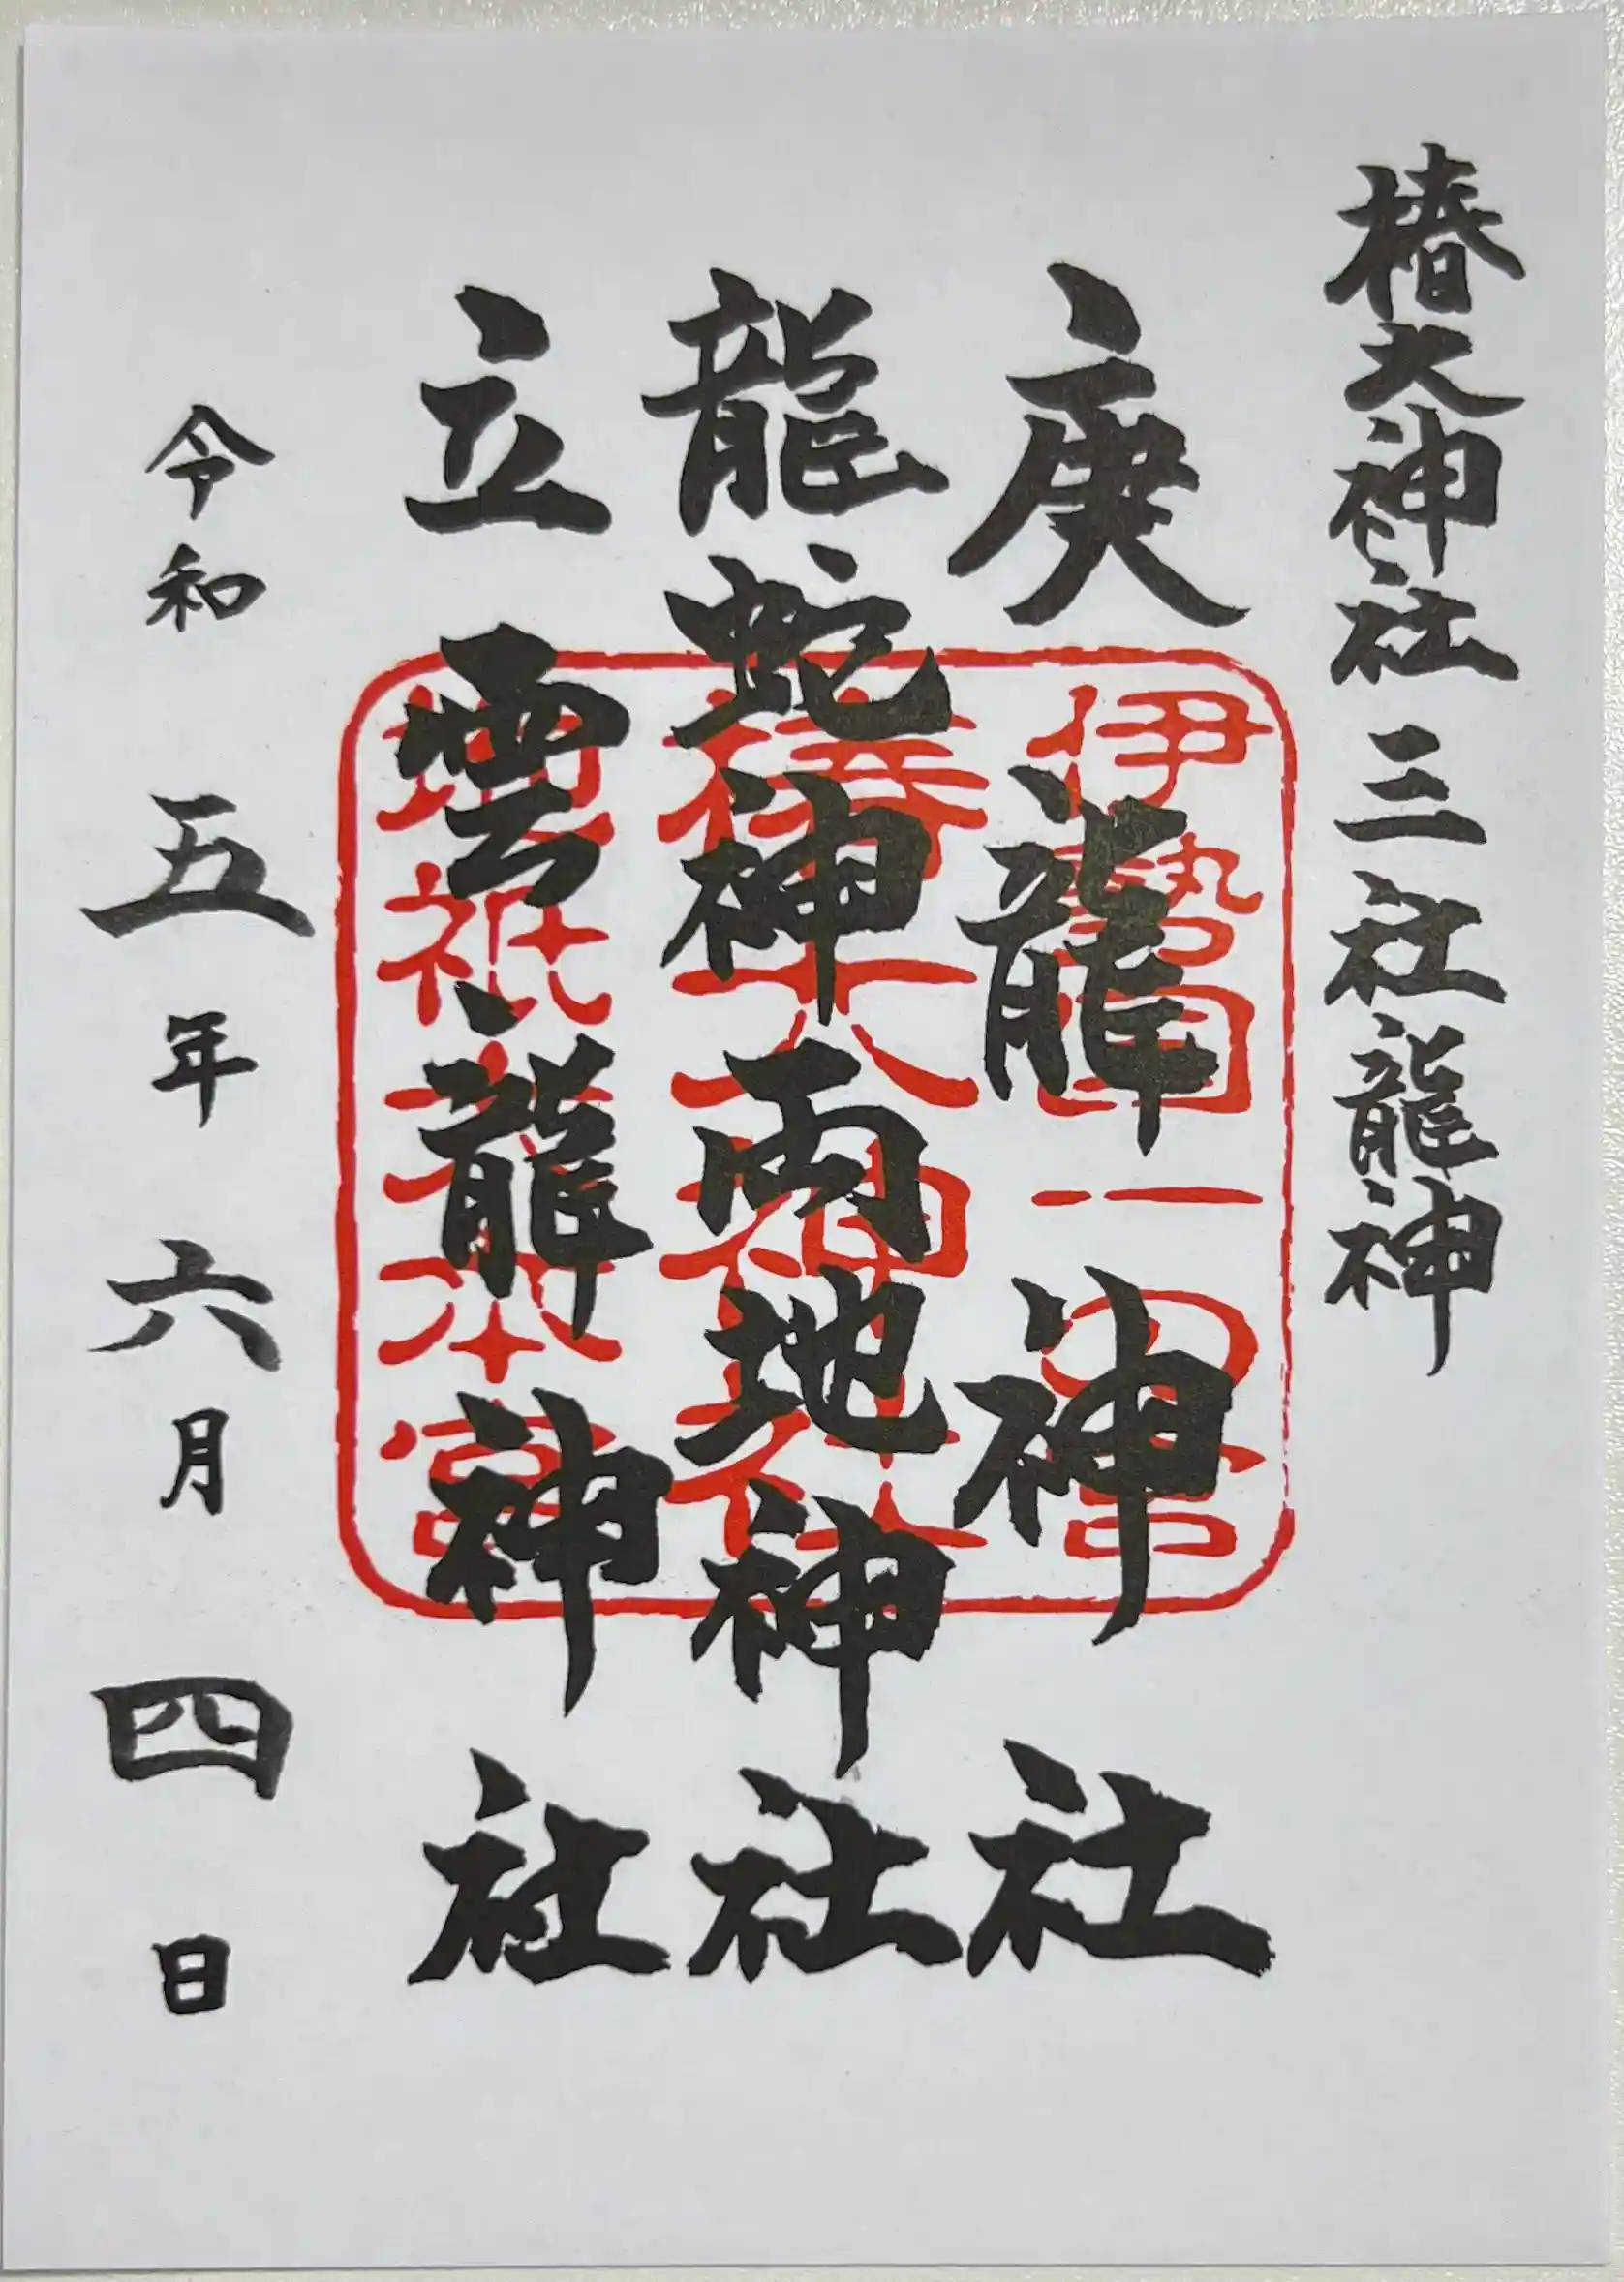 椿大神社三社龍神
庚龍神社
龍蛇神両地神社
立雲龍神社
令和五年六月四日
伊勢国一の宮
椿大神社
地祇大本宮